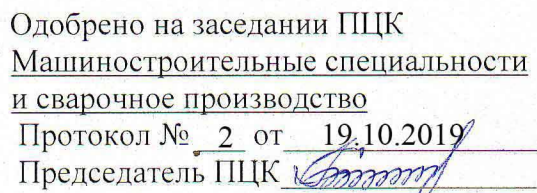 Одобрено на заседании ПЦК
Машиностроительные специальности
и сварочное производство
Протокол № 2 от 19.10.2019
Председатель ПЦК